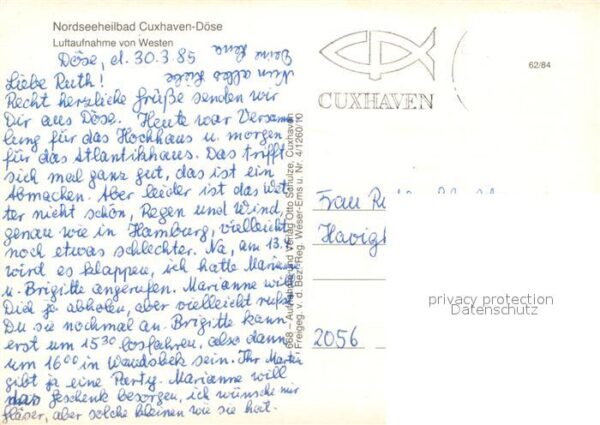 Nordseeheilbad Cuxhaven-Döse
Luftaufnahme von Westen
Döse, d. 30.3.85
Liebe Ruth!
Recht herzliche Grüße senden wir
Dir aus Döse. Heute war Versamm
lung für das Hochhaus u. morgen
für das Atlantikhaus. Das trifft
sich mal ganz gut, das ist ein
Abmachen. Aber leider ist das Wet
ter nicht schön, Regen und Wind,
genau wie in Hamburg, vielleicht
noch etwas schlechter. Na, am 13.4.
wird es klappen, ich hatte Marianne
u. Brigitte angerufen. Marianne will
Dich ja abholen, aber vielleicht rufst
Du sie nochmal an. Brigitte kann
erst um 15 30 losfahren, also dann
um 16 00 in Wandsbek sein. Ihr Martin
gibt ja eine Party. Marianne will
das Geschenk besorgen, ich wünsche mir
Gläser, aber solche kleinen wie sie hat.
Nun alles Liebe
Deine Lena
668 – Aufnahme und Verlag Otto Schulze, Cuxhaven
Freigeg. v. d. Bez. Reg. Weser-Ems u. Nr. 4/1260/10
CUXHAVEN
62/84
Frau
2056
privacy protection
Datenschutz